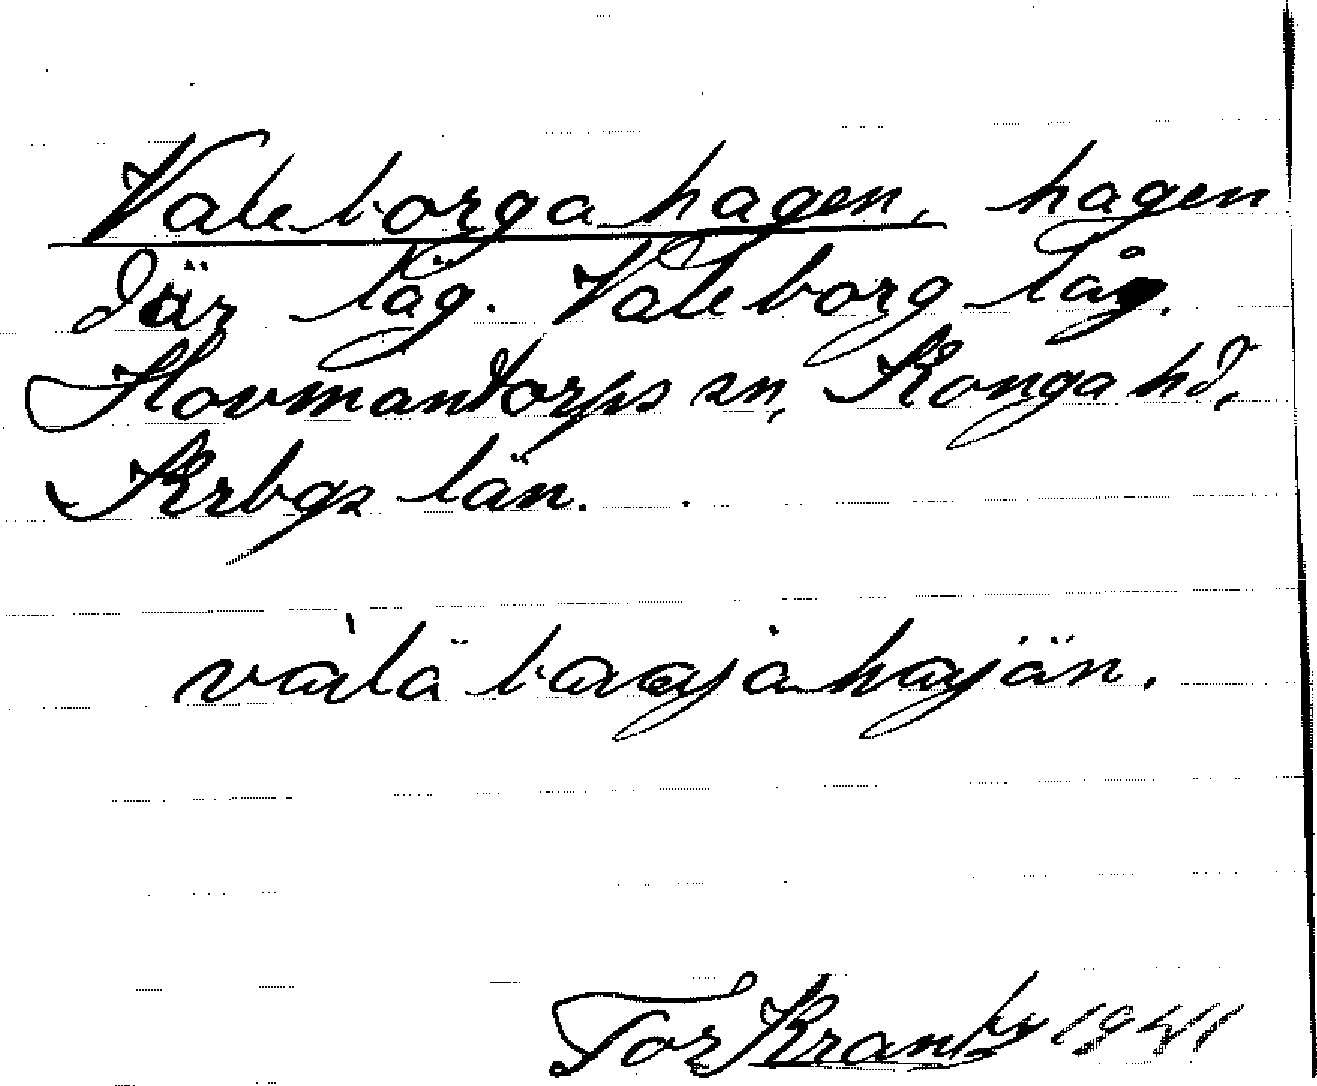 Valeborgahagen, hagen
där låg. Valeborg låg.
Hovmantorps sn, Konga hd,
Krbgs län.
Tor Krantz 1941